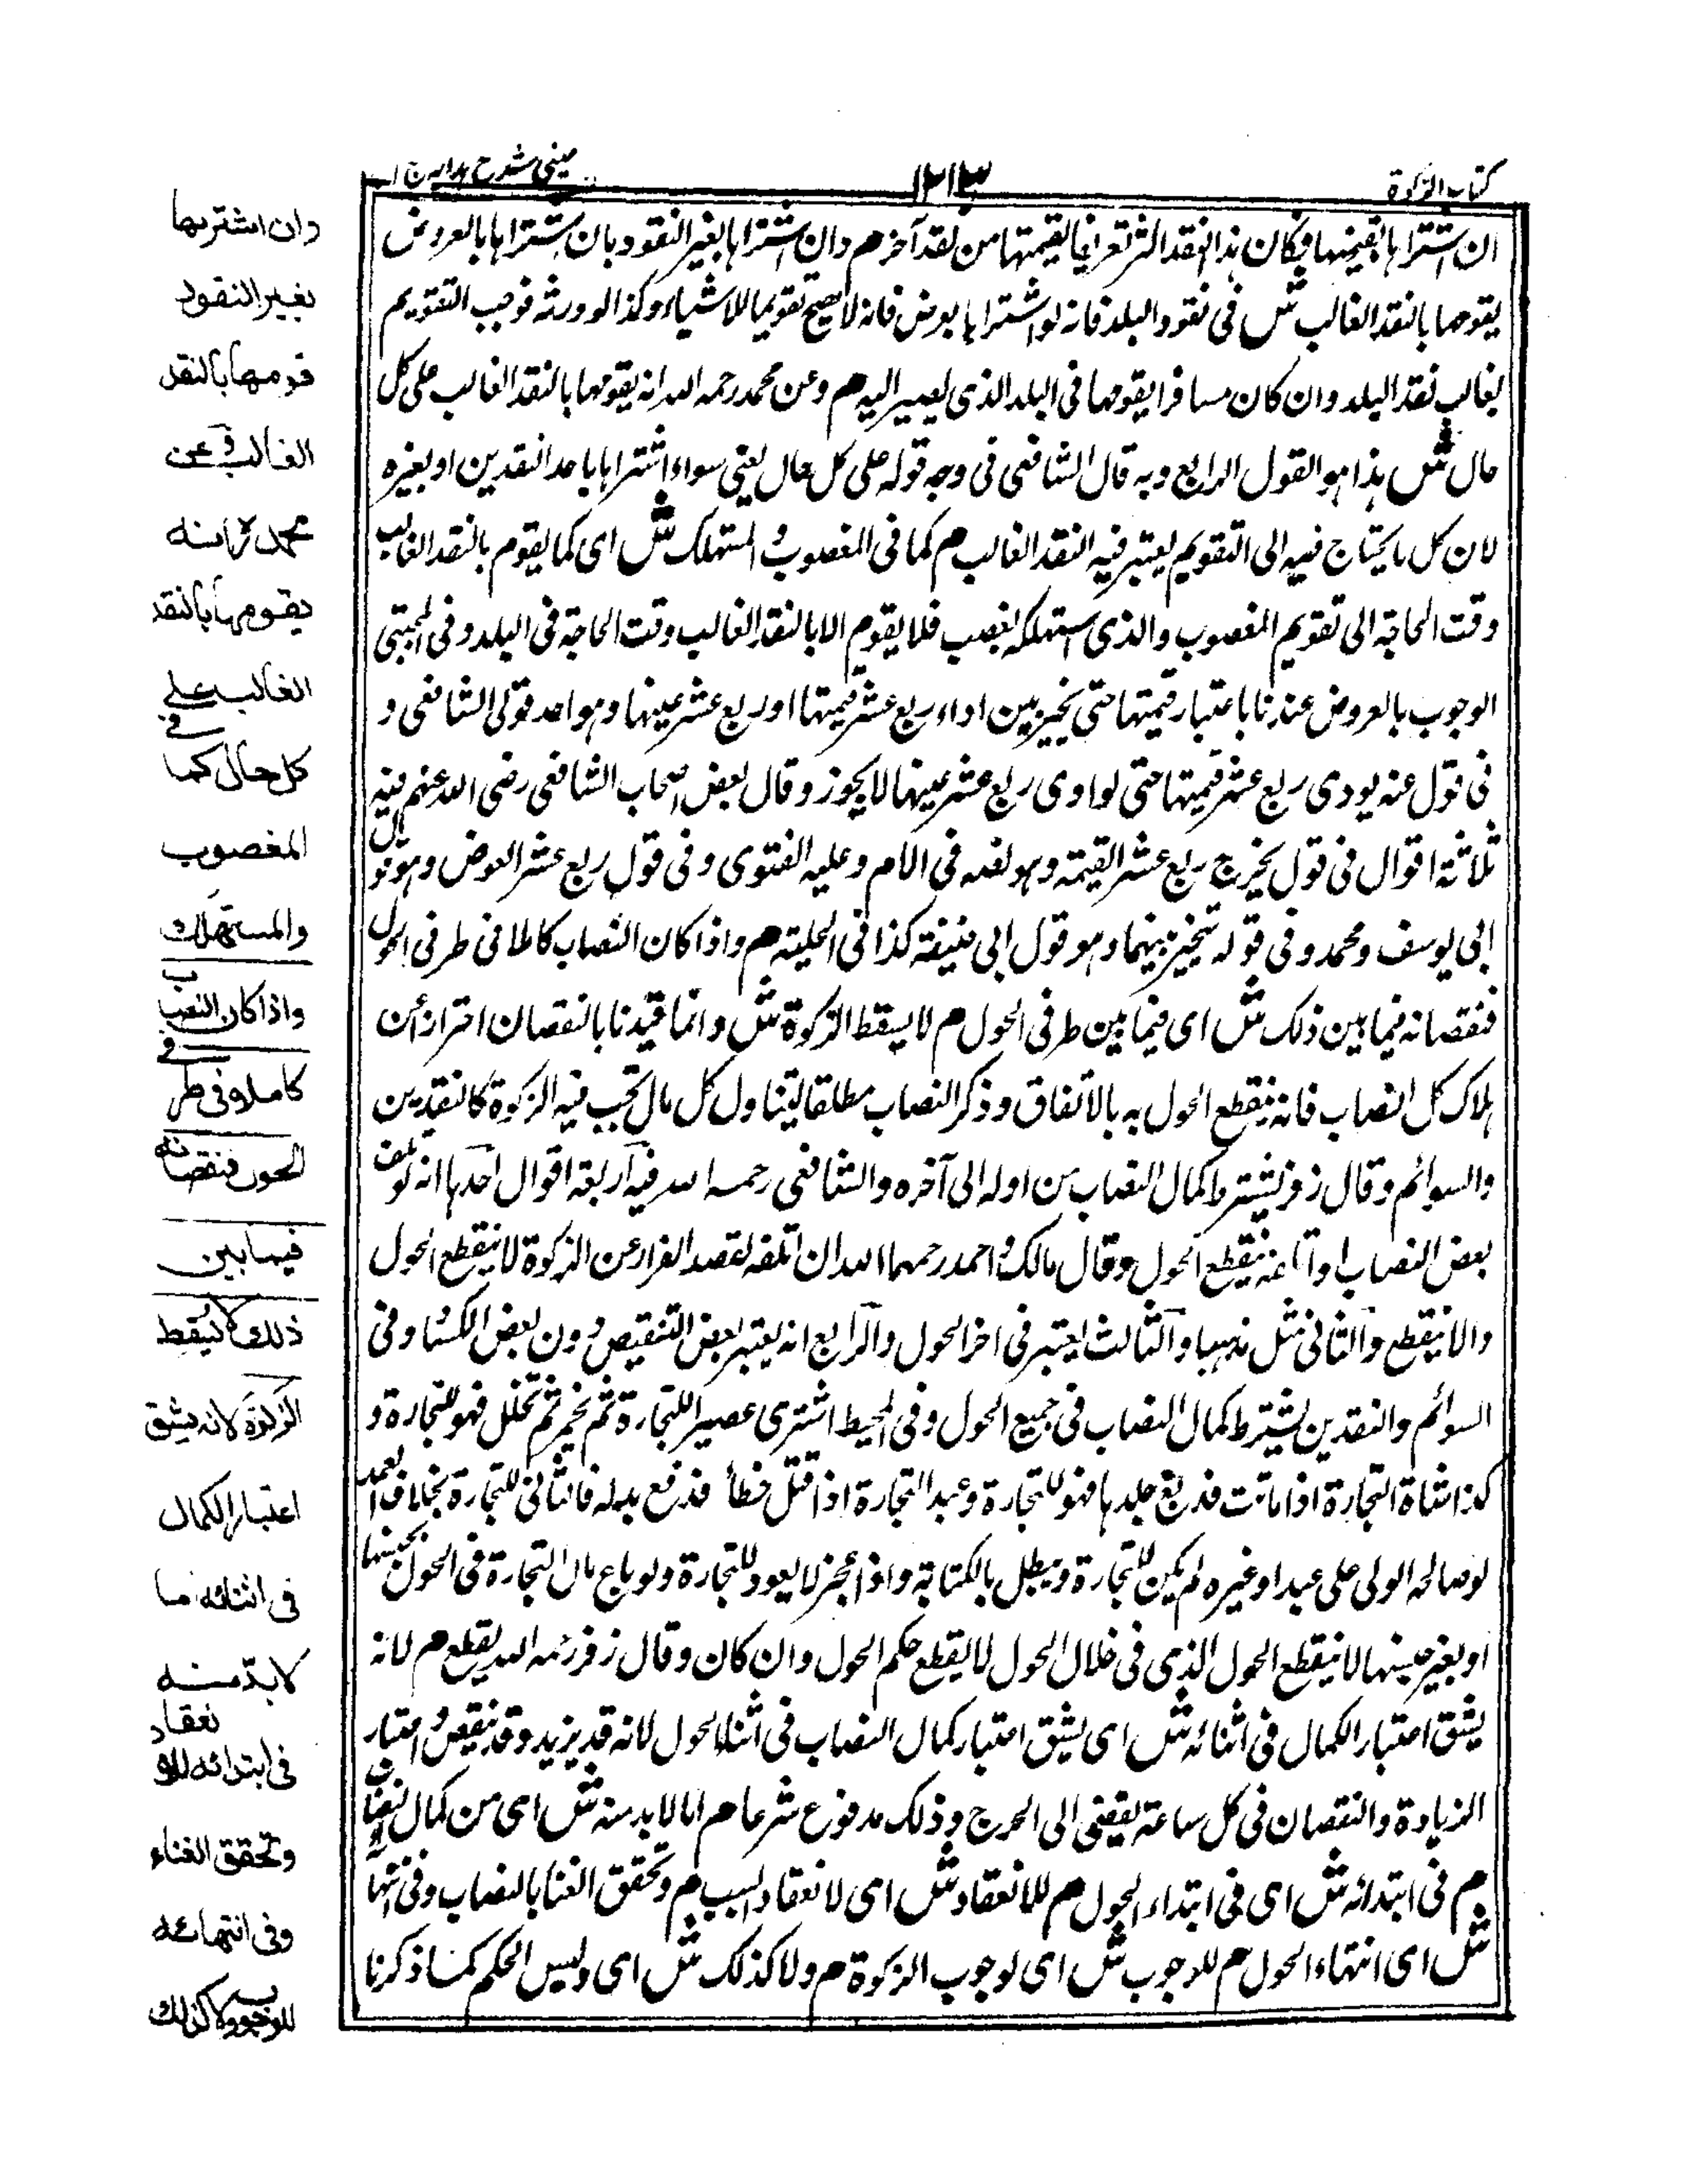 كتاب الزكوة
١٢١٣
عيني شرح هدايه ج ا
ان اشتراها بقيمتها فكان هذا النقد اكثر تعريفا لقيمتها من نقد آخر م وان اشتراها بغير النقود بان اشتراها بالعروض
يقومها بالنقد الغالب ش في نقود البلد فانه لو اشتراها بعرض فانه لا يصح تقويما للاشياء وكذا لو ورثه فوجب التقويم
بغالب نقد البلد وان كان مسافرا يقومها في البلد الذي يصير اليه م وعن محمد رحمه الله انه يقومها بالنقد الغالب على كل
حال ش هذا هو القول الرابع وبه قال الشافعي في وجه قوله على كل حال يعني سواء اشتراها باحد النقدين او بغيره
لان كل ما يحتاج فيه الى التقويم يعتبر فيه النقد الغالب م كما في المغصوب والمستهلك ش اى كما يقوم بالنقد الغالب
وقت الحاجة الى تقويم المغصوب والذي استهلكه بغصب فلا يقوم الا بالنقد الغالب وقت الحاجة في البلد وفي المجتبى
الوجوب بالعروض عندنا باعتبار قيمتها حتى يخير بين اداء ربع عشر قيمتها او ربع عشر عينها وهو احد قولى الشافعي و
في قول عنه يودى ربع عشر قيمتها حتى لو ادى ربع عشر عينها لا يجوز وقال بعض اصحاب الشافعي رضى الله عنهم فيه
ثلاثة اقوال في قول يخرج ربع عشر القيمة وهو نصه في الام وعليه الفتوى وفي قول ربع عشر العرض وهو قول
ابى يوسف ومحمد وفي قوله يتخير بينهما وهو قول ابى حنيفة كذا في الحلية م واذا كان النصاب كاملا في طرفي الحول
فنقصانه فيما بين ذلك ش اى فيما بين طرفي الحول م لا يسقط الزكوة ش وانما قيدنا بالنقصان احترازا عن
هلاك كل النصاب فانه ينقطع الحول به بالاتفاق وذكر النصاب مطلقا ليتناول كل مال تجب فيه الزكوة كالنقدين
والسوائم وقال زفر يشترط كمال النصاب من اوله الى آخره والشافعي رحمه الله فيه اربعة اقوال احدها انه لو تلف
بعض النصاب او باعه ينقطع الحول وقال مالك واحمد رحمهما الله ان اتلفه لقصد الفرار عن الزكوة لا ينقطع الحول
والا ينقطع والثاني مثل مذهبنا والثالث يعتبر في اخر الحول والرابع انه يعتبر بعض التنقيص دون بعض وفي
السوائم والنقدين يشترط كمال النصاب في جميع الحول وفي المحيط اشترى عصيرا للتجارة ثم تخمر ثم تخلل فهو للتجارة و
كذا شاة التجارة اذا ماتت فدبغ جلدها فهو للتجارة وعبد التجارة اذا قتل خطأ فدفع بدله فالثاني للتجارة بخلاف العمد
لو صالحه الولى على عبد او غيره لم يكن للتجارة ويبطل بالكتابة واذا عجز لا يعود للتجارة ولو باع مال التجارة في الحول بجنسها
او بغير جنسها لا ينقطع الحول الذي في خلال الحول لا يقطع حكم الحول وان كان وقال زفر رحمه الله يقطع م لانه
يشق اعتبار الكمال في اثنائه ش اى يشق اعتبار كمال النصاب في اثناء الحول لانه قد يزيد وقد ينقص واعتبار
الزيادة والنقصان في كل ساعة يفضى الى الحرج وذلك مدفوع شرعا م اما لا بد منه ش اى من كمال النصاب
م في ابتدائه ش اى في ابتداء الحول م للانعقاد ش اى لانعقاد السبب م وتحقق الغنا بالنصاب وفي انتهائه
ش اى انتهاء الحول م للوجوب ش اى لوجوب الزكوة م ولا كذلك ش اى وليس الحكم كما ذكرنا
وان اشتريها
بغير النقود
قومها بالنقد
الغالب وعن
محمد انه
يقومها بالنقد
الغالب على
كل حال كما في
المغصوب
والمستهلك
واذا كان النصاب
كاملا في طرفي
الحول فنقصانه
فيما بين
ذلك لا يسقط
الزكوة لانه يشق
اعتبار الكمال
في اثنائه اما
لا بد منه
في ابتدائه للانعقاد
وتحقق الغناء
وفي انتهائه
للوجوب ولا كذلك